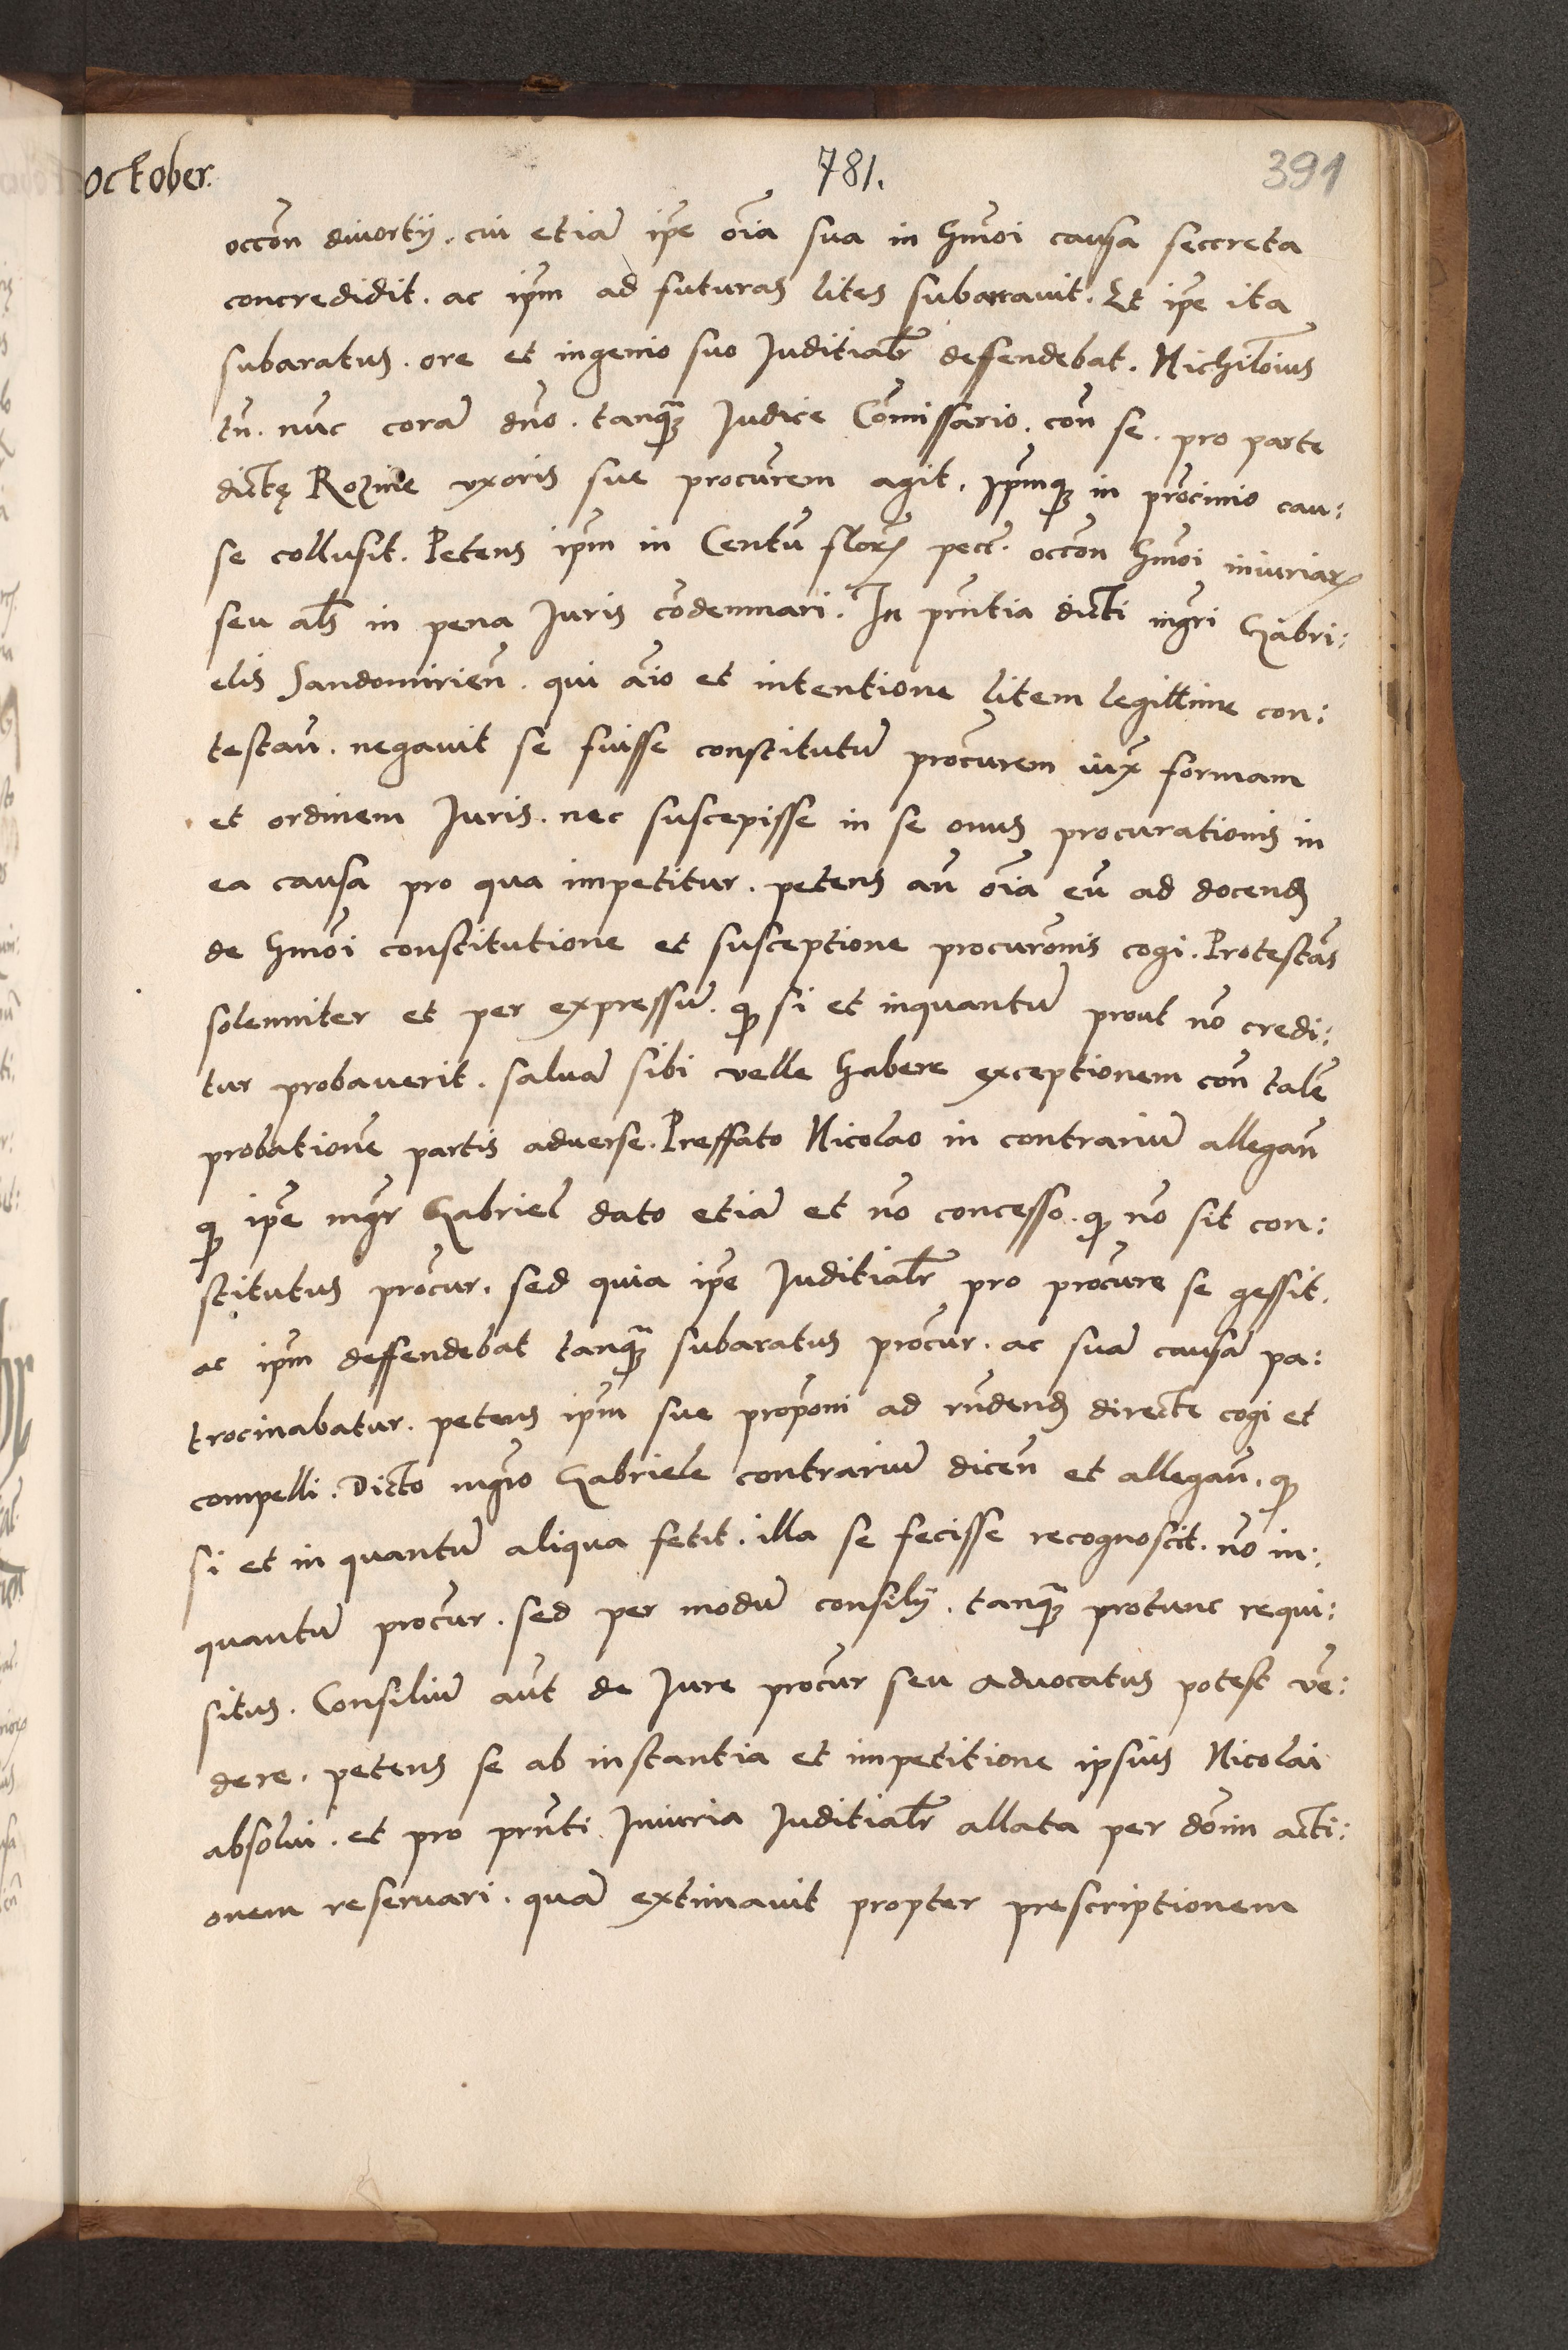 October.
781.
391
occon̄ divortij. cui etiā ip̄e oīa sua in hmōi causa seccreta
concredidit. ac ip̄m ad futuras lites subarravit. Et ip̄e ita
subaratus. ore et ingenio suo Juditialr̄ deffendebat. Nichilōius
tn̄. nūc corā dn̄o. tanqꝫ Judice Cōmissario. con̄ se. pro parte
dictę Rozine vxoris sue procur̄em agit. Ip̄mqꝫ in prōcinio cau:
se collusit. Petens ip̄m in Centū florꝝ pecc. occon̄ hmōi iniuriarꝝ
seu als̄ in pena Juris cōdemnari. In pn̄tia dicti mgr̄i Gabri:
elis Sandomirien̄. qui aīo et intentione litem legittime con:
testan̄. negavit se fuisse constitutū procur̄em iux̄ formam
et ordinem Juris. nec suscepisse in se onus procurationis in
ea causa pro qua impetitur. petens an̄ oīa eū ad docendꝫ
de hmōi constitutione et susceptione procurōnis cogi. Protestās
solenniter et per expressū. qꝫ si et inquantū prout nō credi:
tur probaverit. salvā sibi velle habere exceptionem con̄ talē
probationē partis adverse. Preffato Nicolao in contrariū allegan̄
qꝫ ip̄e mgr̄ Gabriel dato etiā et nō concesso. qꝫ nō sit con:
stitutus procur̄. sed quia ip̄e Juditialr̄ pro procur̄e se gessit.
ac ip̄m deffendebat tanqꝫ subaratus procur̄. ac suā causā pa:
trocinabatur. petens ip̄m sue propōni ad rn̄dendꝫ directe cogi et
compelli. Dicto mgr̄o Gabriele contrariū dicen̄ et allegan̄. qꝫ
si et in quantū aliqua fetit. illa se fecisse recognoscit. nō in:
quantū procur̄. sed per modū consilij. tanqꝫ protunc requi:
situs. Consiliū aut̄ de Jure procur̄ seu advocatus potest vē:
dere. petens se ab instantia et impetitione ipsius Nicolai
absolvi. et pro pn̄ti Iniuria Juditialr̄ allata per dōim acti:
onem reservari. quā extimavit propter prescriptionem